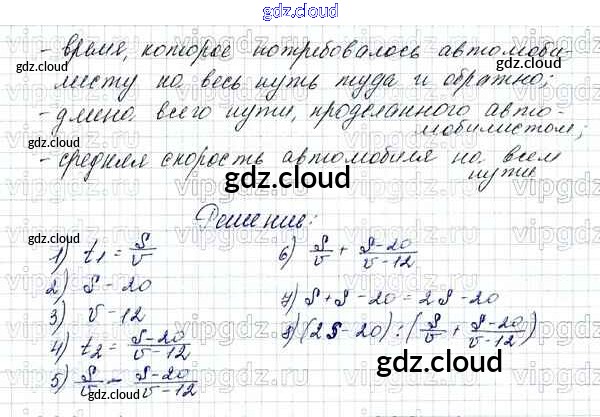 gdz.cloud
- время, которое потребовалось автомоби-
листу на весь путь туда и обратно;
- длина всего пути, проделанного авто-
мобилистом;
- средняя скорость автомобиля на всем
пути
gdz.cloud
Решение:
1) t₁ = S/v
2) S - 20
3) v - 12
4) t₂ = S-20/v-12
5) S/v - S-20/v-12
6) S/v + S-20/v-12
7) S + S - 20 = 2S - 20
8) (2S - 20) : (S/v + S-20/v-12)
gdz.cloud